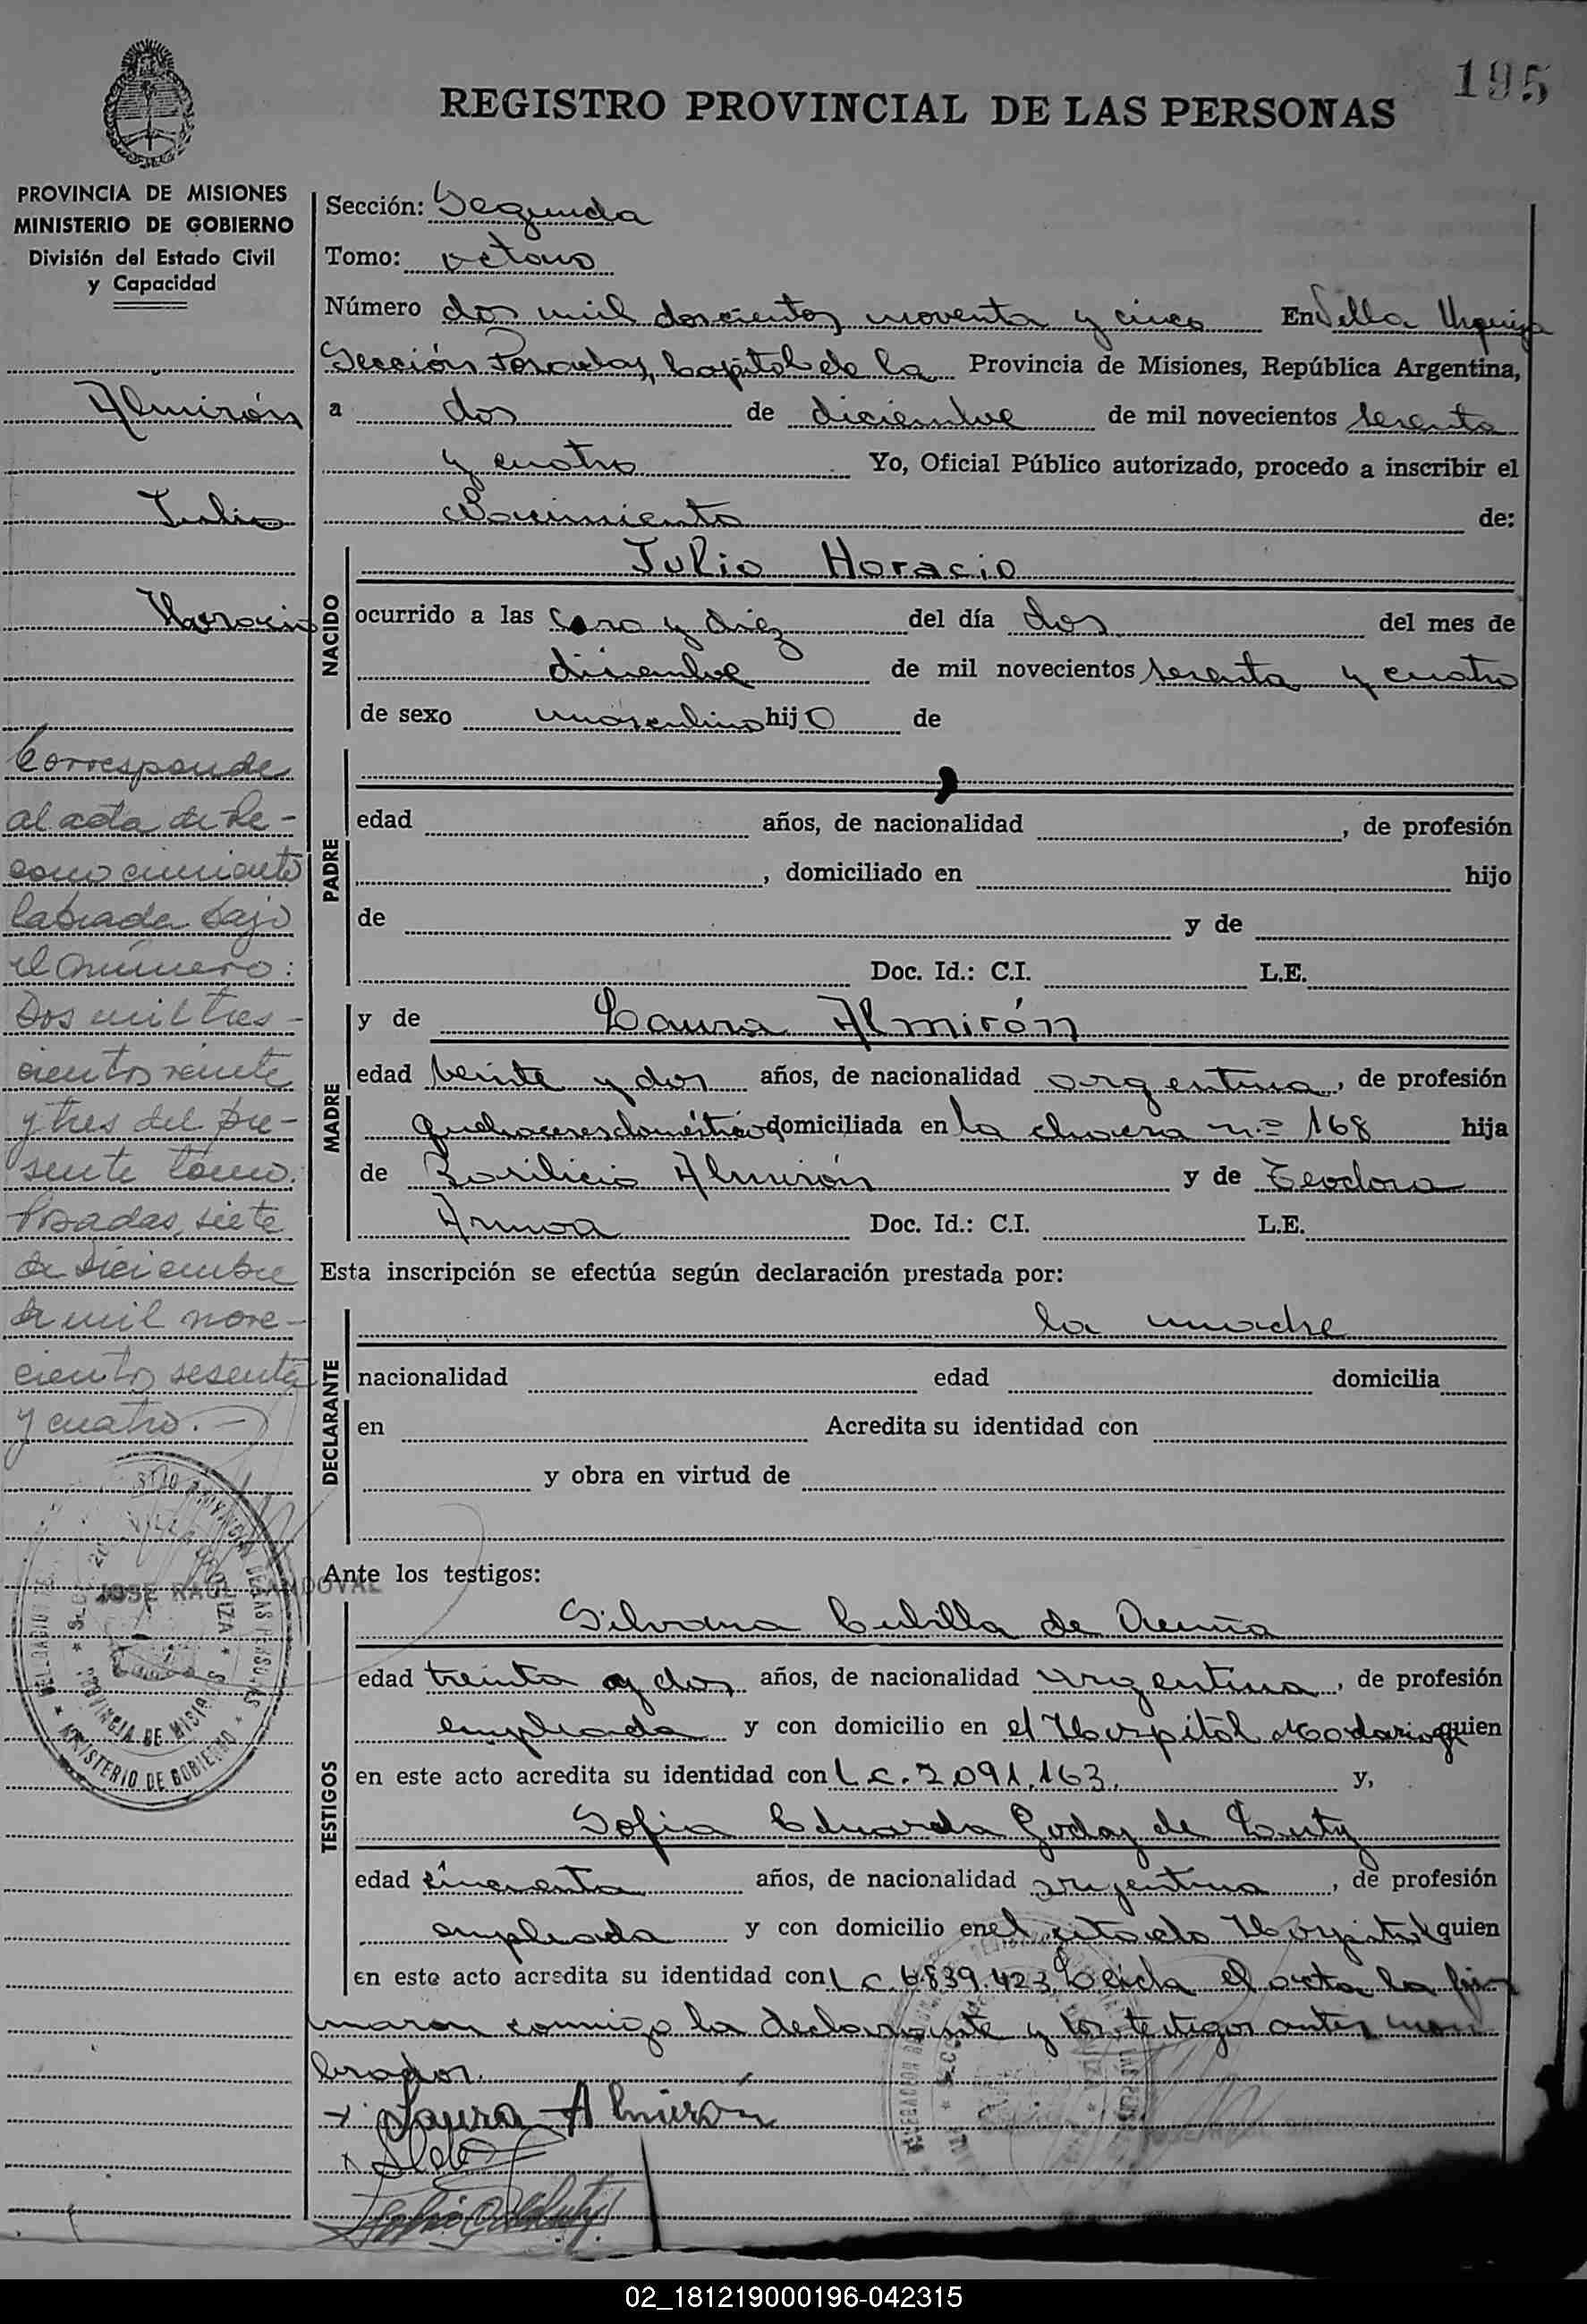 195
REGISTRO PROVINCIAL DE LAS PERSONAS
PROVINCIA DE MISIONES
MINISTERIO DE GOBIERNO
División del Estado Civil
y Capacidad
Almirón
Julio
Horacio
Corresponde
al acta de Re-
conocimiento
labrada bajo
el número:
Dos mil tres-
cientos veinte
y tres del pre-
sente tomo.
Posadas, siete
de diciembre
de mil nove-
cientos sesenta
y cuatro.-
JOSE RAUL SANDOVAL
PROVINCIA DE MISIONES
MINISTERIO DE GOBIERNO
Sección: Segunda
Tomo: octavo
Número dos mil doscientos noventa y cinco En Villa Urquiza
Sección Posadas, Capital de la Provincia de Misiones, República Argentina,
a dos de diciembre de mil novecientos sesenta
y cuatro Yo, Oficial Público autorizado, procedo a inscribir el
Nacimiento de:
NACIDO
Julio Horacio
ocurrido a las cero y diez del día dos del mes de
diciembre de mil novecientos sesenta y cuatro
de sexo masculino hijo de
PADRE
edad años, de nacionalidad , de profesión
, domiciliado en hijo
de y de
Doc. Id.: C.I. L.E.
MADRE
y de Laura Almirón
edad veinte y dos años, de nacionalidad argentina, de profesión
quehaceres domésticos domiciliada en la chacra n.º 168 hija
de Basilicio Almirón y de Teodora
Armoa Doc. Id.: C.I. L.E.
Esta inscripción se efectúa según declaración prestada por:
DECLARANTE
la madre
nacionalidad edad domicilia
en Acredita su identidad con
y obra en virtud de
Ante los testigos:
TESTIGOS
Silvana Cubilla de Acuña
edad treinta y dos años, de nacionalidad argentina, de profesión
empleada y con domicilio en el Hospital Madariaga quien
en este acto acredita su identidad con L.C. 2.091.163. y,
Sofia Eduarda Godoy de
edad cincuenta años, de nacionalidad argentina, de profesión
empleada y con domicilio en el citado Hospital quien
en este acto acredita su identidad con L.C. 6.839.423. Leida el acta la fir
maron conmigo la declarante y los testigos antes nom
brados.
x Laura Almirón
x
02_181219000196-042315